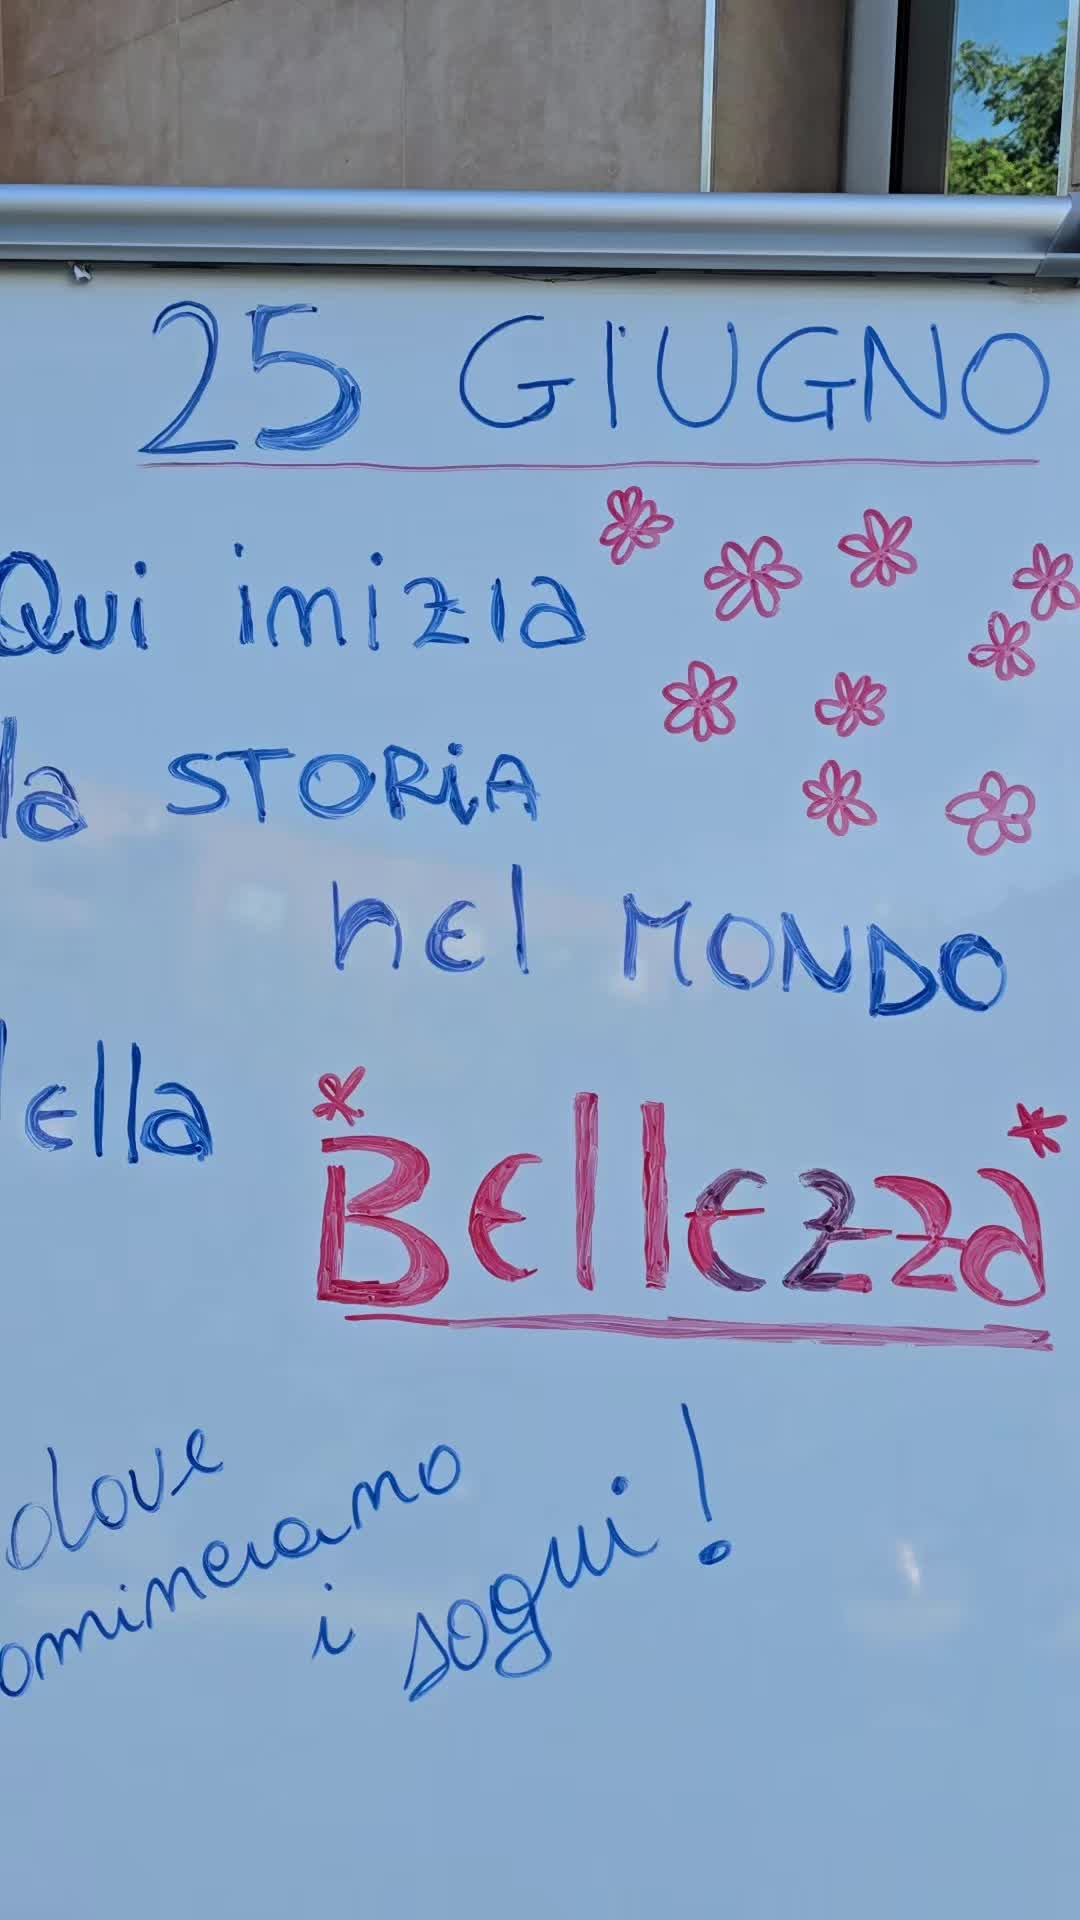 25 GIUGNO
Qui inizia
la STORiA
nel MONDO
della
Bellezza
dove
omineranno
i sogni!